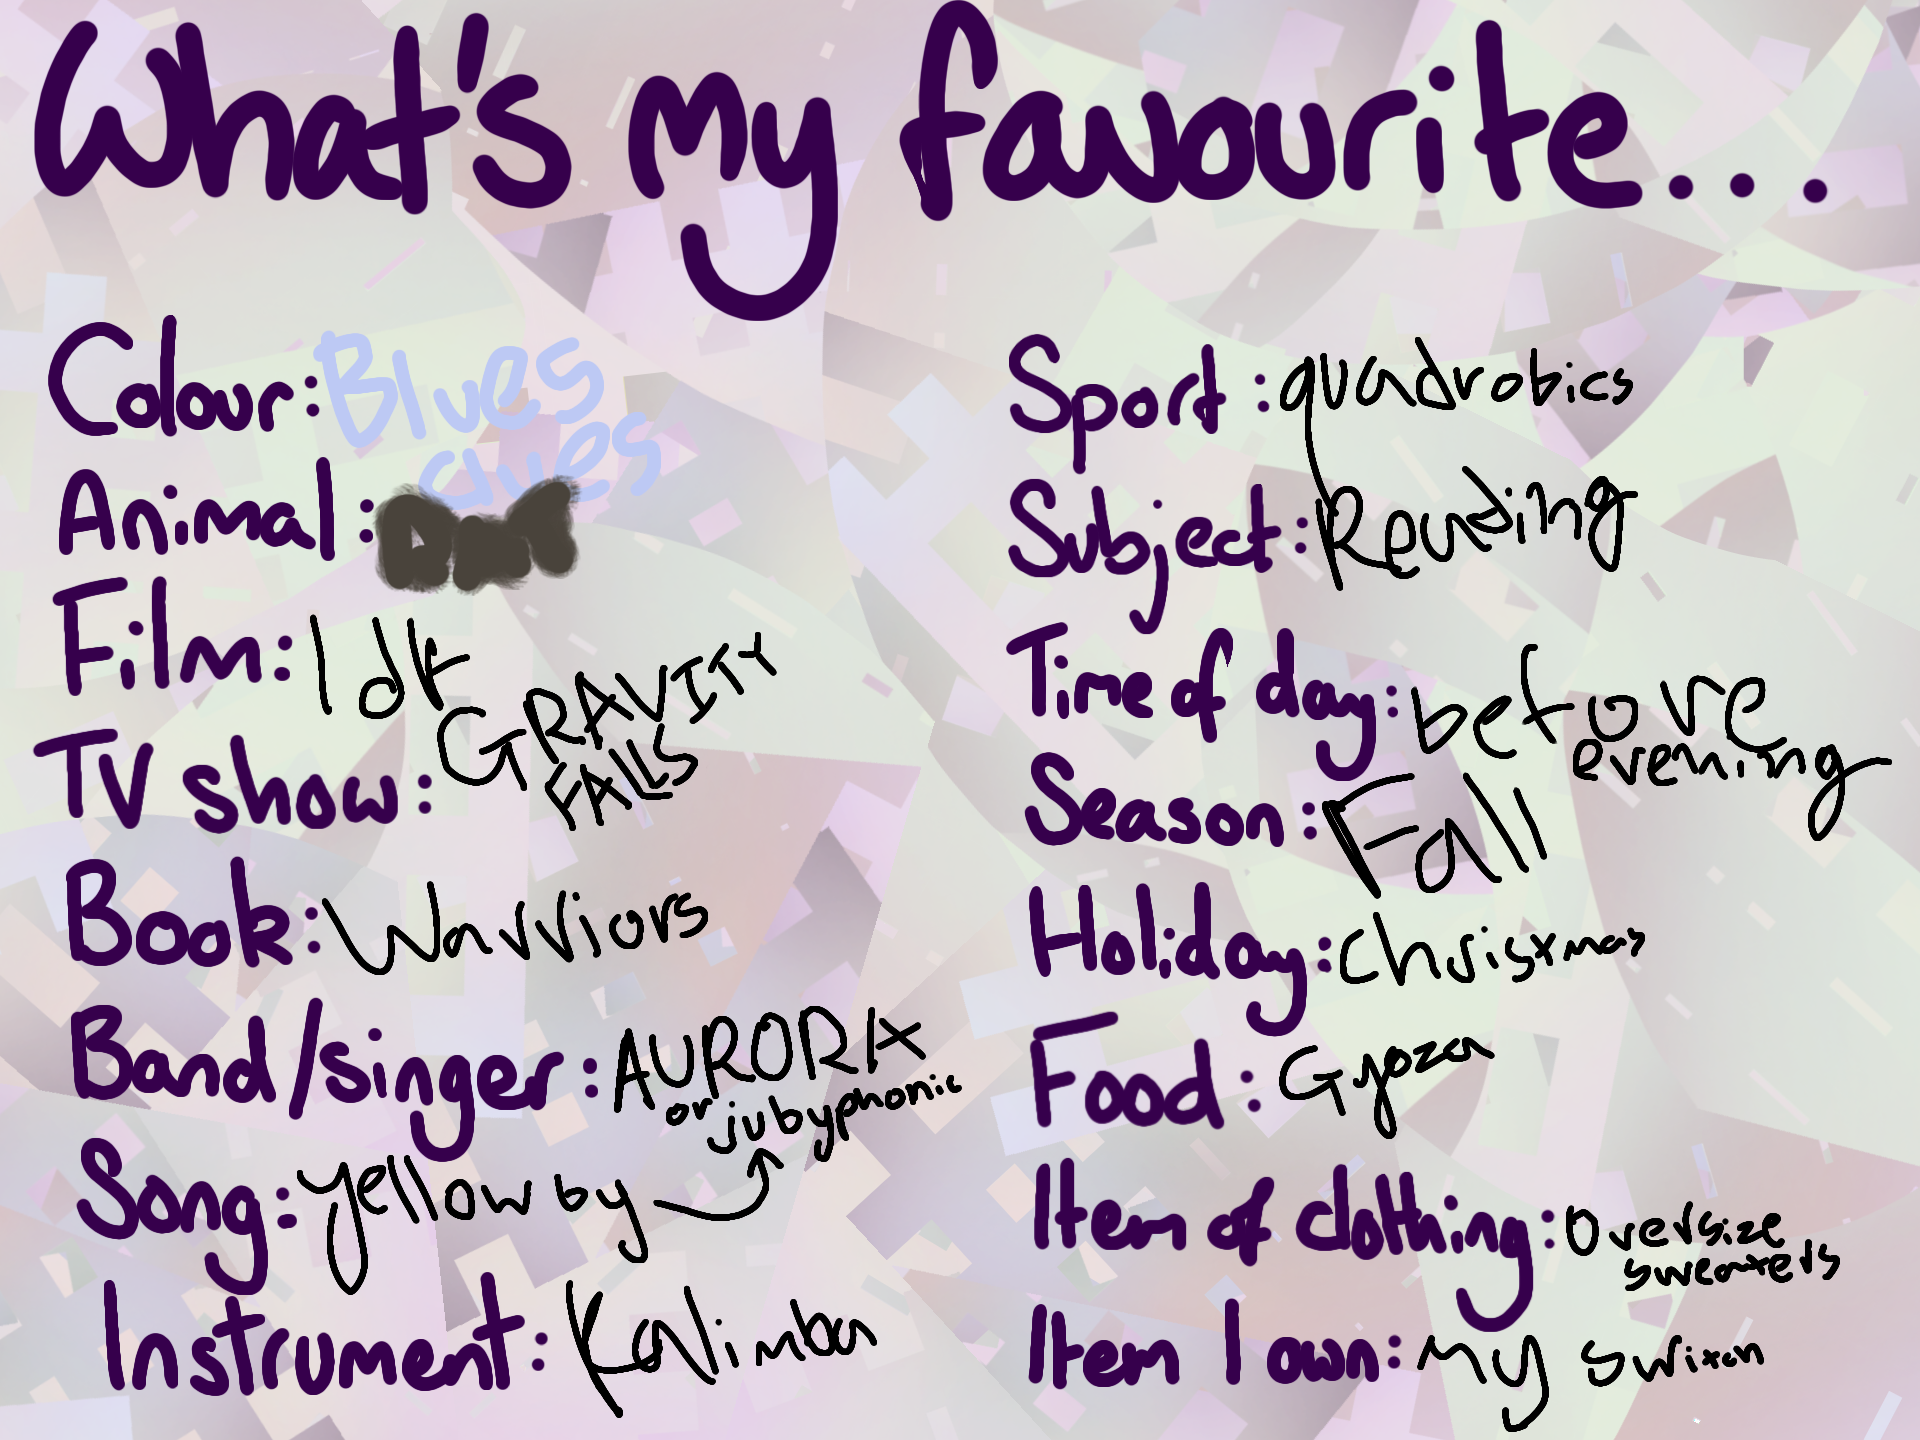 What's my favourite...
Colour: Blues
clues
Animal:
Film: Idk
TV show: GRAVITY
FALLS
Book: Warriors
Band/singer: AURORA
or jubyphonic
Song: yellow by
Instrument: Kalimba
Sport: quadrobics
Subject: Reading
Time of day: before
evening
Season: Fall
Holiday: Christmas
Food: Gyoza
Item of clothing: Oversize
sweaters
Item I own: my